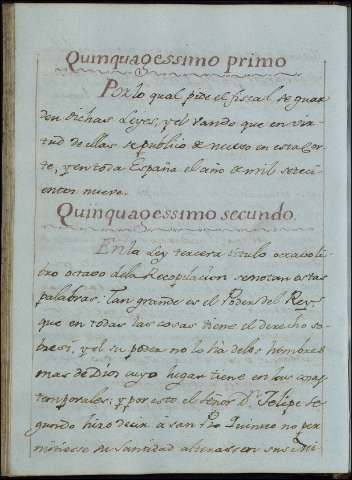 Quinquagessimo primo
Por lo qual pide el fiscal se guar
den dichas Leyes, y el Vando que en vir
tud de ellas se publicò de nuevo en esta Cor
te, y en toda España el año de mil setecí
entos nueve.
Quinquagessimo secundo.
En la Ley tercera titulo octavo li
bro octavo dela Recopilacion se notan estas
palabras. Tan grande es el Poder del Rey,
que en todas las cosas tiene el derecho so
bre sí, y el su poder no lo ha delos hombres
mas de Dios cuyo lugar tiene en las cosas
temporales; y por esto el señor Dn. Felipe Se
gundo hizo decir a san Pio Quinto no per
mitiesse su santidad alterassen sus Mi